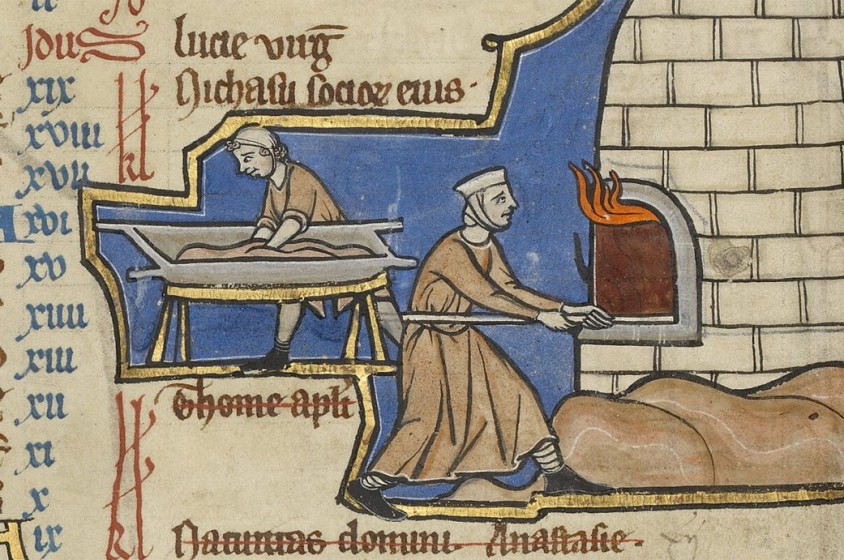 Idus lucie virg̅
xix Nichasii socioꝝ eius.
xviii
xvii kl
xvi
xv
xiiii
xiii
xii Thome apl̅i
xi
x kl
ix Natiuitas domini. Anastasie.